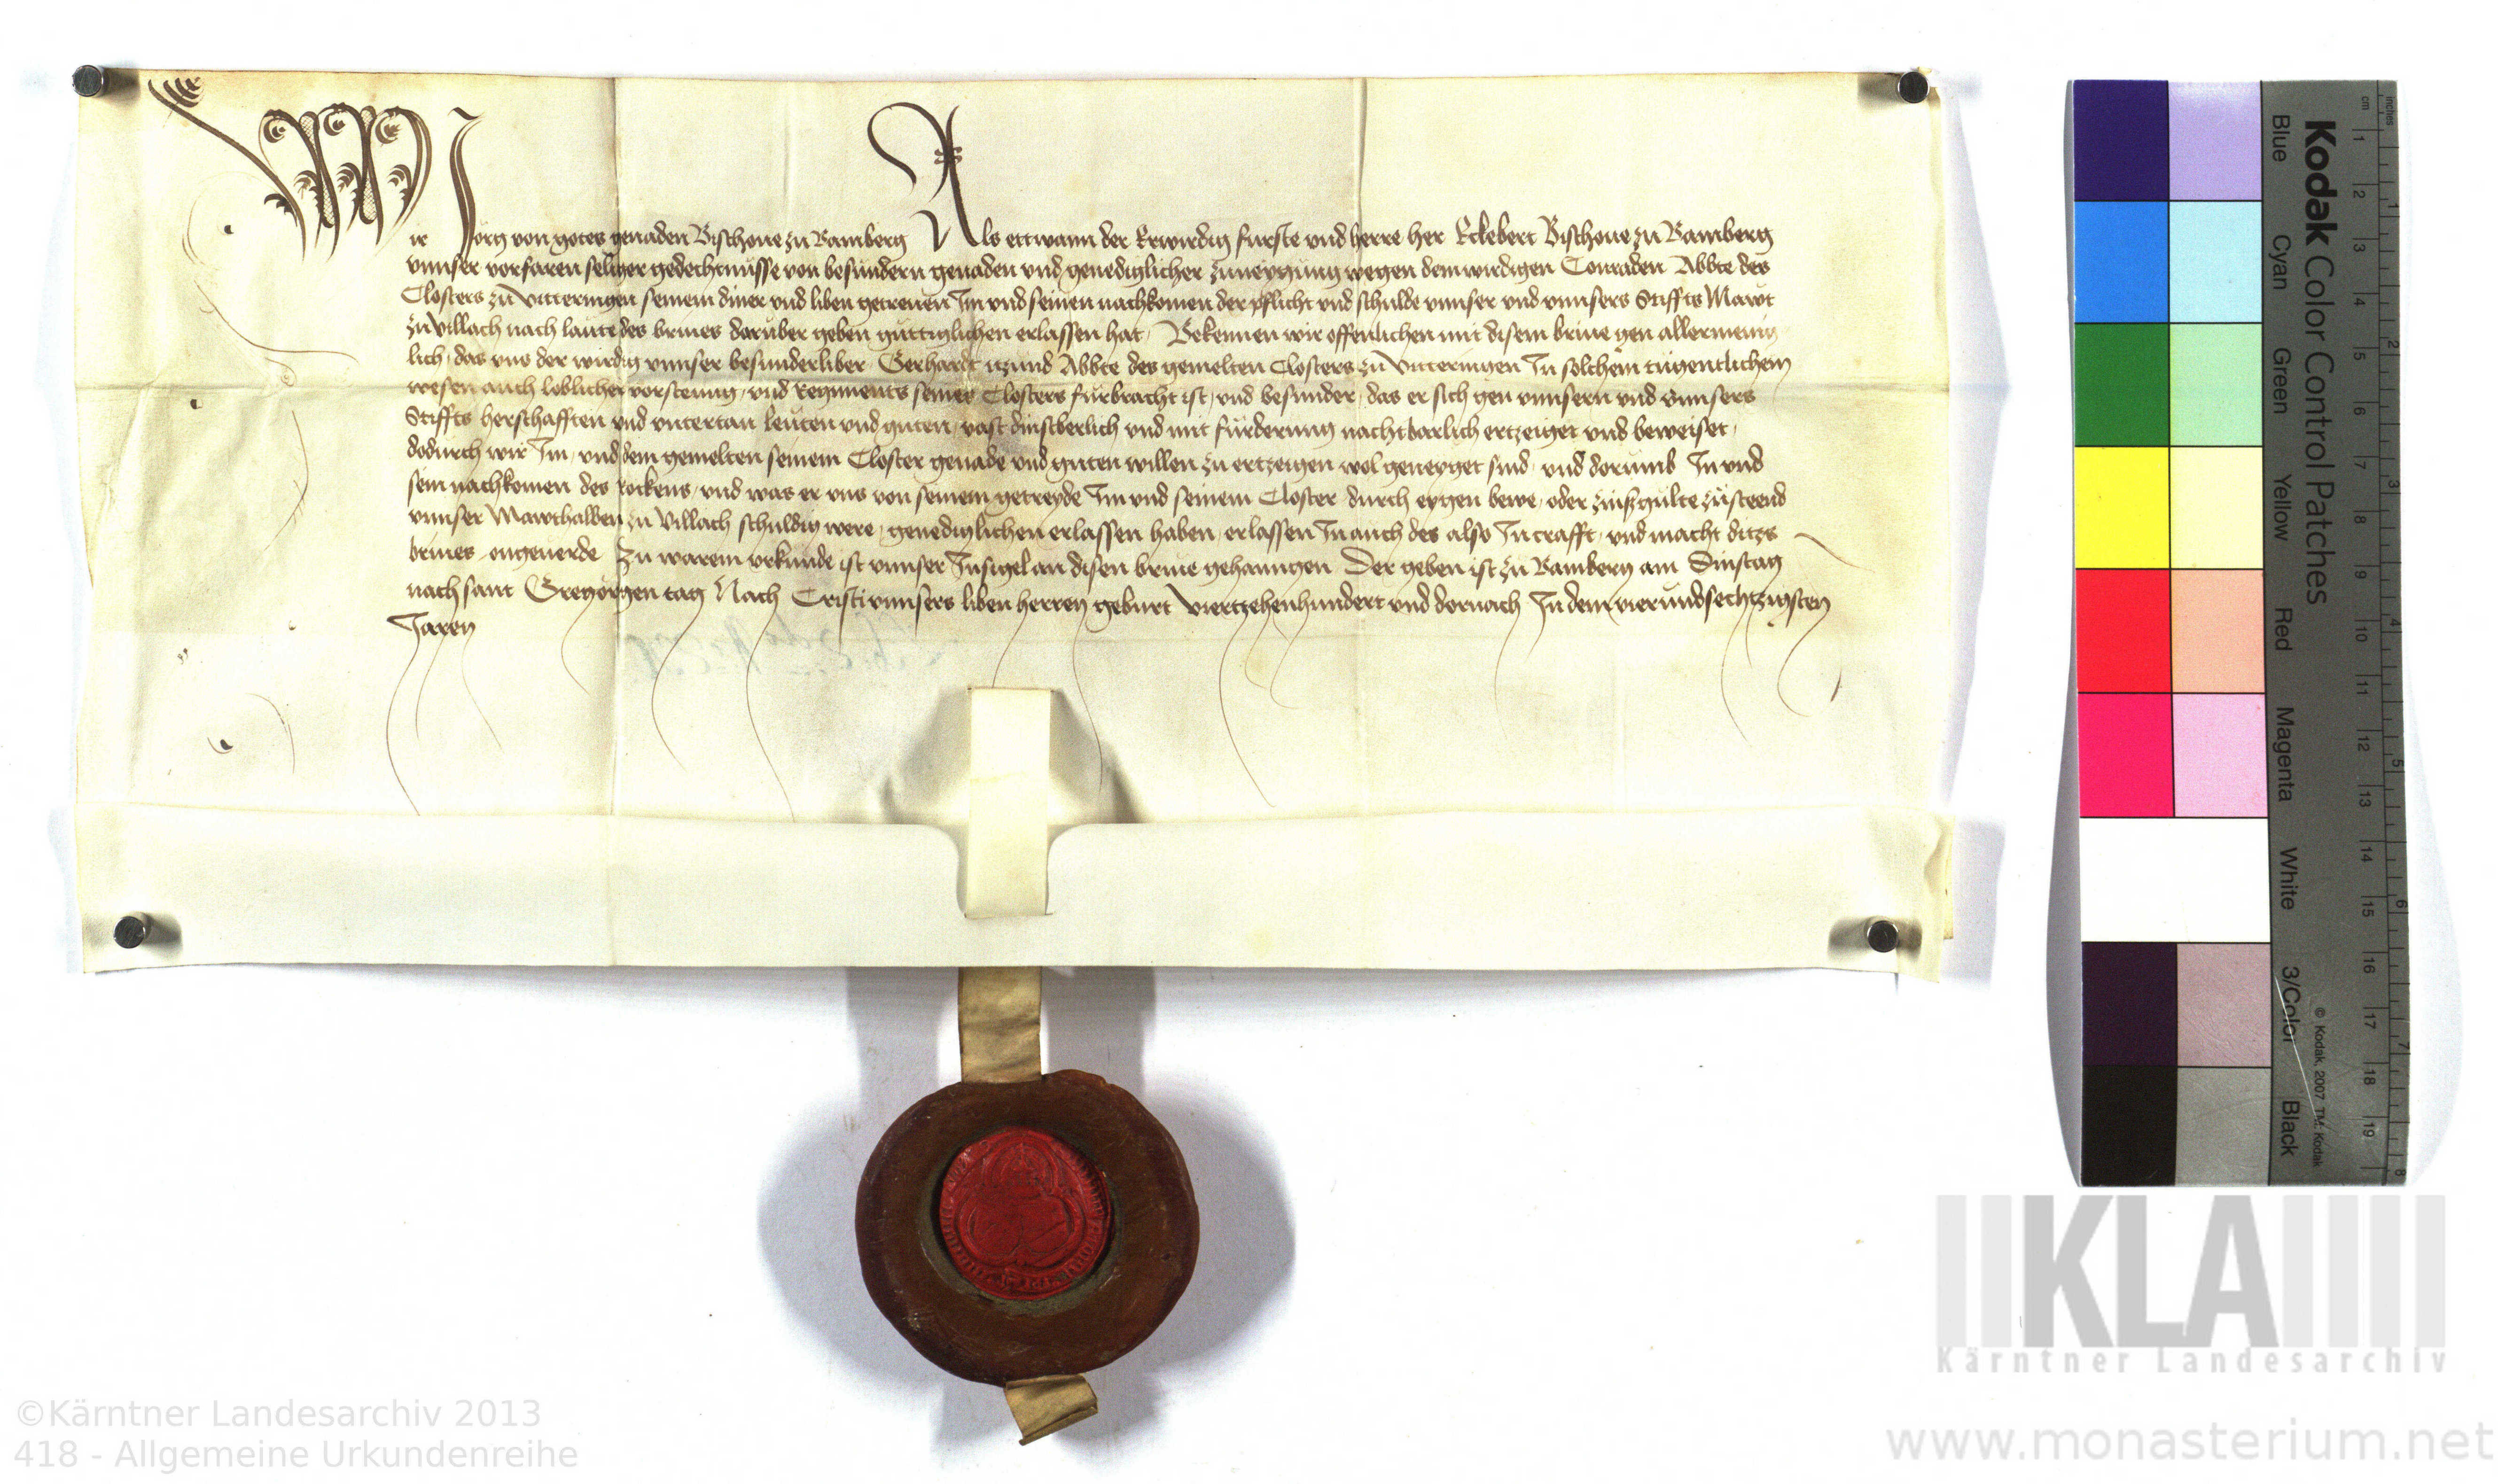 Wir Jorg von gotes genaden Bischoue zu Bamberg Als ettwann der Erwirdig furste vnd herre her Eckebert Bischoue zu Bamberg
vnnser vorfaren seliger gedechtnusse von besundern genaden vnd genediglicher zuneygung wegen dem wirdigen Conraden Abbte des
Closters zu Vitteringen seinem diner vnd liben getreuen Im vnd seinen nachkomen der pflicht vnd schulde vnnser vnd vnnsers Stiffts Mawt
zu Villach nach laute des briues daruber geben guttiglichen erlassen hat, Bekennen wir offenlichen mit disem briue gen allermenig
lich, das vns der wirdig vnnser besunderliber Gerhardt itzund Abbte des gemelten Closters zu Vitteringen In solchem tugentlichem
wesen auch loblicher vorsteung, vnd Regiments seines Closters furbracht ist, vnd besunder, das er sich gen vnnsern vnd vnnsers
Stiffts herschafften vnd vntertan leuten vnd guten, vast dinstberlich vnd mit furderung nachtbarlich ertzeiget vnd beweiset,
dodurch wir Im, vnd dem gemelten seinem Closter genade vnd guten willen zu ertzeigen wol geneyget sind, vnd dorumb In vnd
sein nachkomen des Rockens, vnd was er vns von seinem getreyde Im vnd seinem Closter durch eygen bewe, oder zinßgulte zusteend
vnnser Mawthalben zu Villach schuldig were, genediglichen erlassen haben, erlassen In auch des also In crafft, vnd macht ditzs
briues ongeuerde Zu warem vrkunde ist vnnser Insigel an disen briue gehanngen Der geben ist zu Bamberg am Dinstag
nach sant Gregorgen tag Nach Cristi vnnsers liben herren geburt Viertzehenhundert vnd dornach In dem vierundsechtzigsten
Jaren
Kodak Color Control Patches
Blue Cyan Green Yellow Red Magenta White 3/Color Black
© Kodak, 2007 TM: Kodak
cm 1 2 3 4 5 6 7 8 9 10 11 12 13 14 15 16 17 18 19
inches 1 2 3 4 5 6 7 8
KLA
Kärntner Landesarchiv
©Kärntner Landesarchiv 2013
418 - Allgemeine Urkundenreihe
www.monasterium.net